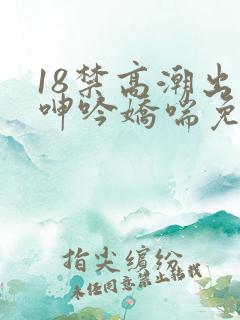 18禁高潮出
呻吟娇喘免
指尖缤纷
未经同意禁止转载